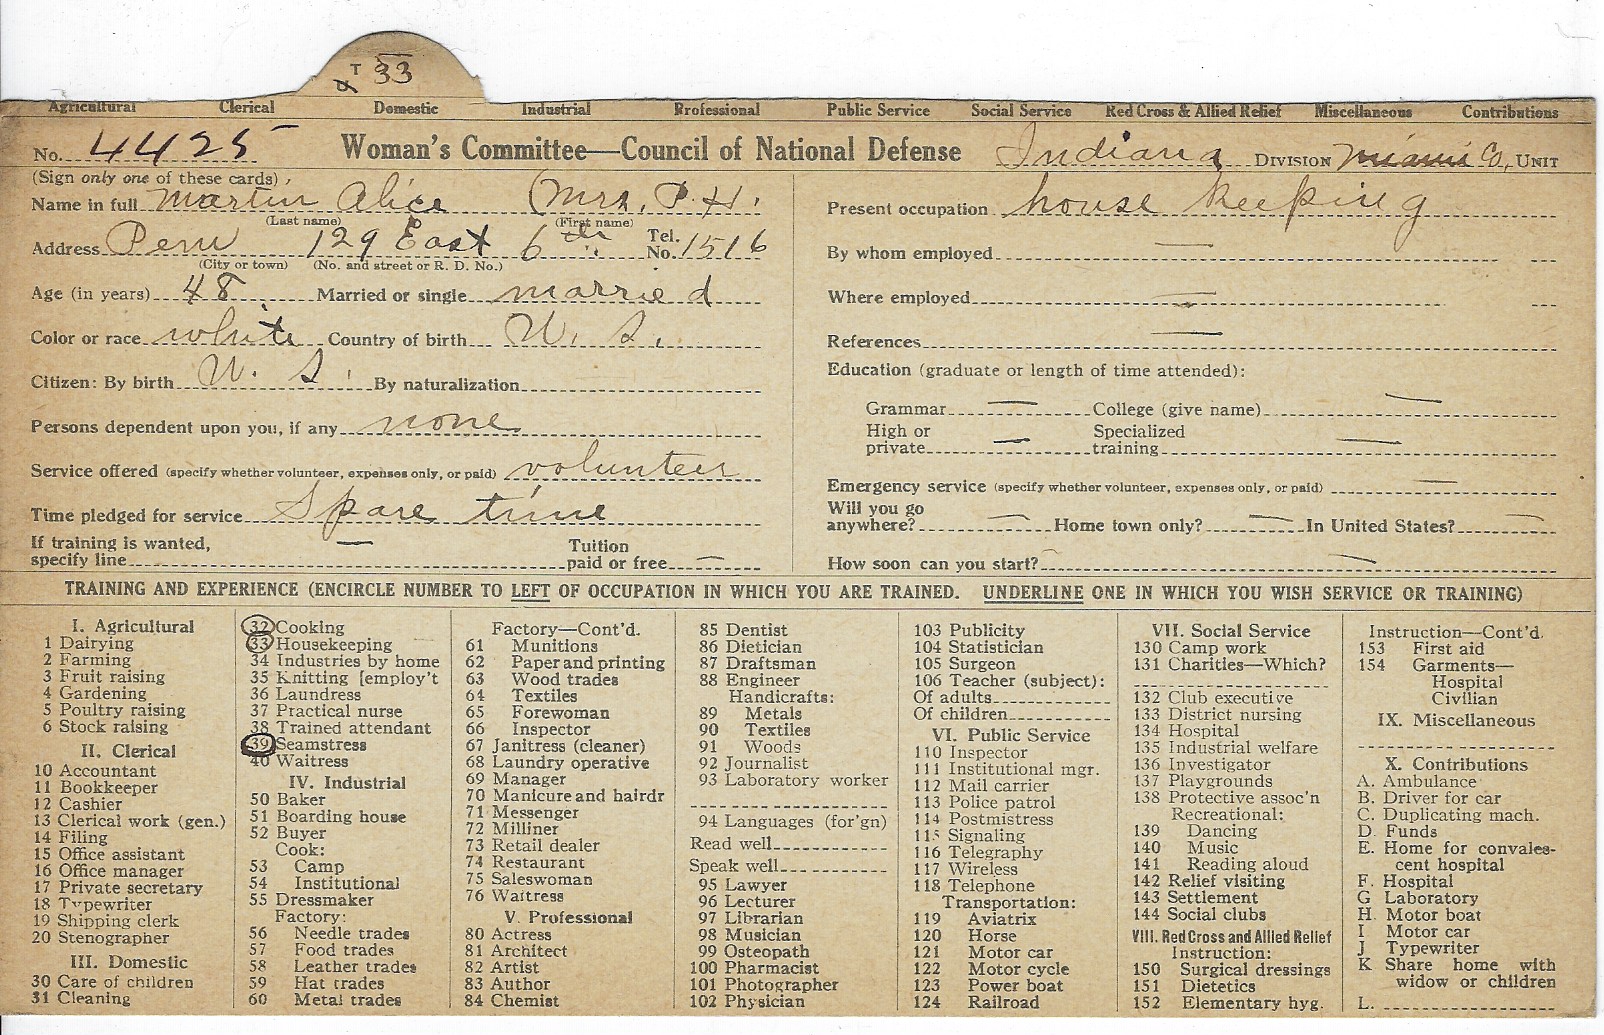 T 33
Agricultural Clerical Domestic Industrial Professional Public Service Social Service Red Cross & Allied Relief Miscellaneous Contributions
No. 4425 Woman's Committee—Council of National Defense Indiana DIVISION Miami Co, UNIT
(Sign only one of these cards)
Name in full Martin Alice (Mrs. P. H.
(Last name) (First name)
Address Peru 129 East 6th Tel. No. 1516
(City or town) (No. and street or R. D. No.)
Age (in years) 48 Married or single married
Color or race white Country of birth U. S.
Citizen: By birth U. S. By naturalization
Persons dependent upon you, if any none
Service offered (specify whether volunteer, expenses only, or paid) volunteer
Time pledged for service Spare time
If training is wanted, specify line — Tuition paid or free —
Present occupation house keeping
By whom employed —
Where employed —
References —
Education (graduate or length of time attended):
Grammar — College (give name) —
High or private — Specialized training —
Emergency service (specify whether volunteer, expenses only, or paid) —
Will you go anywhere? — Home town only? — In United States? —
How soon can you start? —
TRAINING AND EXPERIENCE (ENCIRCLE NUMBER TO LEFT OF OCCUPATION IN WHICH YOU ARE TRAINED. UNDERLINE ONE IN WHICH YOU WISH SERVICE OR TRAINING)
I. Agricultural
1 Dairying
2 Farming
3 Fruit raising
4 Gardening
5 Poultry raising
6 Stock raising
II. Clerical
10 Accountant
11 Bookkeeper
12 Cashier
13 Clerical work (gen.)
14 Filing
15 Office assistant
16 Office manager
17 Private secretary
18 Typewriter
19 Shipping clerk
20 Stenographer
III. Domestic
30 Care of children
31 Cleaning
32 Cooking
33 Housekeeping
34 Industries by home
35 Knitting [employ't
36 Laundress
37 Practical nurse
38 Trained attendant
39 Seamstress
40 Waitress
IV. Industrial
50 Baker
51 Boarding house
52 Buyer
Cook:
53 Camp
54 Institutional
55 Dressmaker
Factory:
56 Needle trades
57 Food trades
58 Leather trades
59 Hat trades
60 Metal trades
Factory—Cont'd.
61 Munitions
62 Paper and printing
63 Wood trades
64 Textiles
65 Forewoman
66 Inspector
67 Janitress (cleaner)
68 Laundry operative
69 Manager
70 Manicure and hairdr
71 Messenger
72 Milliner
73 Retail dealer
74 Restaurant
75 Saleswoman
76 Waitress
V. Professional
80 Actress
81 Architect
82 Artist
83 Author
84 Chemist
85 Dentist
86 Dietician
87 Draftsman
88 Engineer
Handicrafts:
89 Metals
90 Textiles
91 Woods
92 Journalist
93 Laboratory worker
94 Languages (for'gn)
Read well
Speak well
95 Lawyer
96 Lecturer
97 Librarian
98 Musician
99 Osteopath
100 Pharmacist
101 Photographer
102 Physician
103 Publicity
104 Statistician
105 Surgeon
106 Teacher (subject):
Of adults
Of children
VI. Public Service
110 Inspector
111 Institutional mgr.
112 Mail carrier
113 Police patrol
114 Postmistress
115 Signaling
116 Telegraphy
117 Wireless
118 Telephone
Transportation:
119 Aviatrix
120 Horse
121 Motor car
122 Motor cycle
123 Power boat
124 Railroad
VII. Social Service
130 Camp work
131 Charities—Which?
132 Club executive
133 District nursing
134 Hospital
135 Industrial welfare
136 Investigator
137 Playgrounds
138 Protective assoc'n
Recreational:
139 Dancing
140 Music
141 Reading aloud
142 Relief visiting
143 Settlement
144 Social clubs
VIII. Red Cross and Allied Relief
Instruction:
150 Surgical dressings
151 Dietetics
152 Elementary hyg.
Instruction—Cont'd.
153 First aid
154 Garments—
Hospital
Civilian
IX. Miscellaneous
X. Contributions
A. Ambulance
B. Driver for car
C. Duplicating mach.
D. Funds
E. Home for convales-
cent hospital
F. Hospital
G Laboratory
H. Motor boat
I. Motor car
J. Typewriter
K Share home with
widow or children
L.